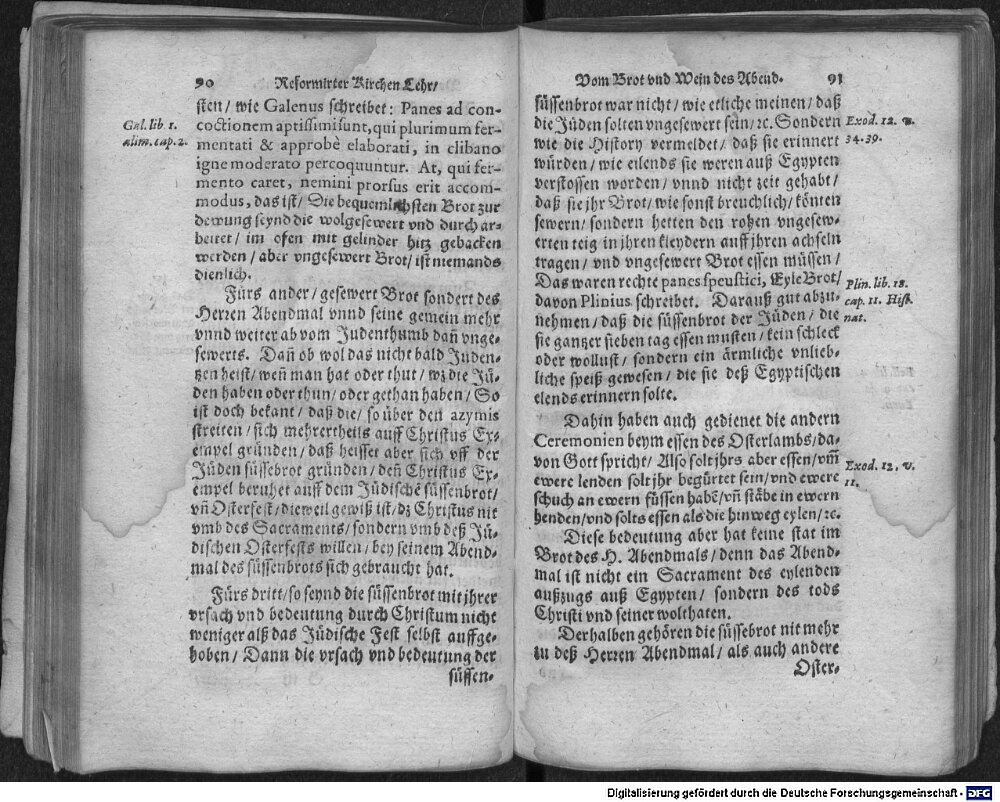 90 Reformirter Kirchen Lehr/
sten/ wie Galenus schreibet: Panes ad con-
Gal. lib. 1.
alim. cap. 2.
coctionem aptissimi sunt, qui plurimum fer-
mentati & approbè elaborati, in clibano
igne moderato percoquuntur. At, qui fer-
mento caret, nemini prorsus erit accom-
modus, das ist/ Die bequemlichsten Brot zur
dewung seynd die wolgesewert vnd durch ar-
beitet/ im ofen mit gelinder hitz gebacken
werden/ aber vngesewert Brot/ ist niemands
dienlich.
Fürs ander/ gesewert Brot sondert des
Herzen Abendmal vnnd seine gemein mehr
vnnd weiter ab vom Judenthumb dañ vnge-
sewerts. Dañ ob wol das nicht bald Juden-
tzen heist/ weñ man hat oder thut/ wz die Jü-
den haben oder thun/ oder gethan haben/ So
ist doch bekant/ daß die/ so über den azymis
streiten/ sich mehrertheils auff Christus Ex-
empel gründen/ daß heisset aber sich vff der
Jüden süssebrot gründen/ deñ Christus Ex-
empel beruhet auff dem Jüdischẽ süssenbrot/
vñ Osterfest/ dieweil gewiß ist/ dz Christus nit
vmb des Sacraments/ sondern vmb deß Jü-
dischen Osterfests willen/ bey seinem Abend-
mal des süssenbrots sich gebraucht hat.
Fürs dritt/ so seynd die süssenbrot mit jhrer
vrsach vnd bedeutung durch Christum nicht
weniger alß das Jüdische Fest selbst auffge-
hoben/ Dann die vrsach vnd bedeutung der
süssen-
Vom Brot vnd Wein des Abend. 91
süssenbrot war nicht/ wie etliche meinen/ daß
die Jüden solten vngesewert sein/ ꝛc. Sondern
Exod. 12. v.
34. 39.
wie die History vermeldet/ daß sie erinnert
würden/ wie eilends sie weren auß Egypten
verstossen worden/ vnnd nicht zeit gehabt/
daß sie jhr Brot/ wie sonst breuchlich/ könten
sewern/ sondern hetten den rohen vngesew-
erten teig in jhren kleydern auff jhren achseln
tragen/ vnd vngesewert Brot essen müssen/
Das waren rechte panes speustici, Eyle Brot/
Plin. lib. 18.
cap. 11. Hist.
nat.
davon Plinius schreibet. Darauß gut abzu-
nehmen/ daß die süssenbrot der Jüden/ die
sie gantzer sieben tag essen musten/ kein schleck
oder wollust/ sondern ein ärmliche vnlieb-
liche speiß gewesen/ die sie deß Egyptischen
elends erinnern solte.
Dahin haben auch gedienet die andern
Ceremonien beym essen des Osterlambs/ da-
von Gott spricht/ Also solt jhrs aber essen/ vm̃
Exod. 12. v.
11.
ewere lenden solt jhr begürtet sein/ vnd ewere
schuch an ewern füssen habẽ/ vñ stäbe in ewern
henden/ vnd solts essen als die hinweg eylen/ ꝛc.
Diese bedeutung aber hat keine stat im
Brot des H. Abendmals/ denn das Abend-
mal ist nicht ein Sacrament des eylenden
außzugs auß Egypten/ sondern des tods
Christi vnd seiner wolthaten.
Derhalben gehören die süssebrot nit mehr
zu deß Herzen Abendmal/ als auch andere
Oster-
Digitalisierung gefördert durch die Deutsche Forschungsgemeinschaft - DFG